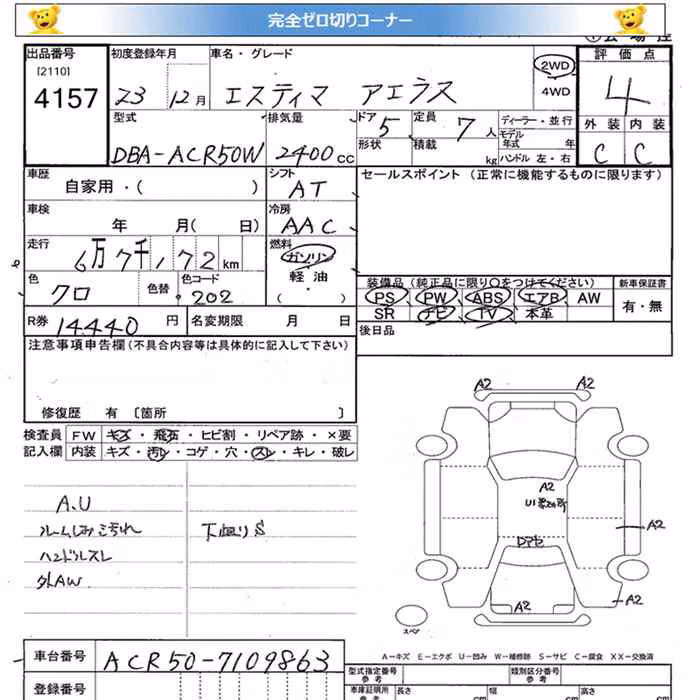 完全ゼロ切りコーナー
出品番号 [2110] 4157
初度登録年月 23 12月
車名・グレード エスティマ アエラス
2WD 4WD
評価点 4
外装 C 内装 C
型式 DBA-ACR50W
排気量 2400cc
ドア 5 形状
定員 7人 積載 kg
ディーラー・並行
モデル年式 年
ハンドル 左・右
車歴 自家用・( )
シフト AT
セールスポイント (正常に機能するものに限ります)
車検 年 月( 日)
冷房 AAC
走行 6万7千172km
燃料 ガソリン 軽油 ・ ( )
色 クロ 色替 色コード 202
装備品(純正品に限り○をつけてください)
PS PW ABS エアB AW
SR ナビ TV 本革
新車保証書 有・無
R券 14440円
名変期限 月 日
後日品
注意事項申告欄(不具合内容等は具体的に記入して下さい)
修復歴 有 〔箇所 〕
検査員記入欄
FW キズ・飛石・ヒビ割・リペア跡・×要
内装 キズ・汚レ・コゲ・穴・スレ・キレ・破レ
A.U
ルームしみこげれ
ハンドルスレ
外AW
下廻りS
A2 A2
A2
U1
A2
A2
A2
スペア
A-キズ E-エクボ U-凹み W-補修跡 S-サビ C-腐食 XX-交換済
車台番号 ACR50-7109863
登録番号
型式指定番号 参考
類別区分番号 参考
車庫証明用 参考 長さ cm 幅 cm 高さ cm